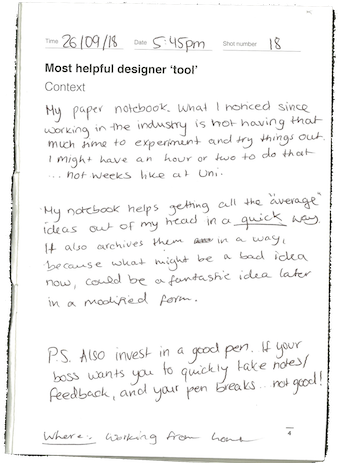 Time 26/09/18 Date 5:45pm Shot number 18
Most helpful designer 'tool'
Context
My paper notebook. What I noticed since
working in the industry is not having that
much time to experiment and try things out.
I might have an hour or two to do that
... not weeks like at Uni.
My notebook helps getting all the "average"
ideas out of my head in a quick way.
It also archives them in a way,
because what might be a bad idea
now, could be a fantastic idea later
in a modified form.
P.S. Also invest in a good pen. If your
boss wants you to quickly take notes/
feedback, and your pen breaks... not good!
Where: Working from home